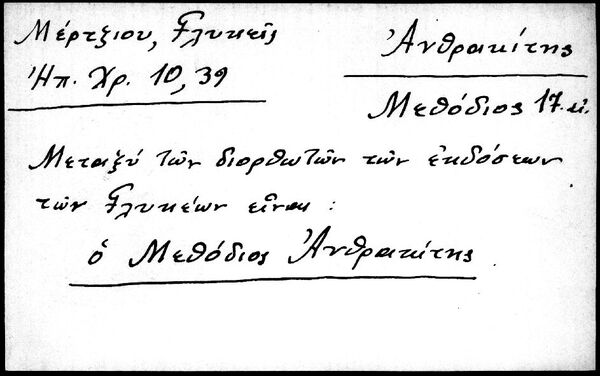 Μέρτζιου, Γλυκεῖς
Ἠπ. Χρ. 10, 39
Ἀνθρακίτης
Μεθόδιος 17 αἰ.
Μεταξύ τῶν διορθωτῶν τῶν ἐκδόσεων
τῶν Γλυκέων εἶναι :
ὁ Μεθόδιος Ἀνθρακίτης